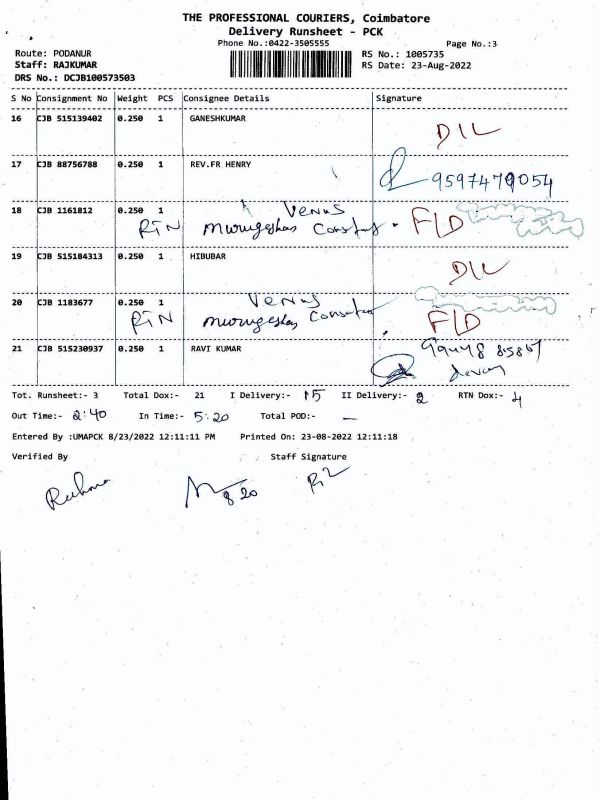 THE PROFESSIONAL COURIERS, Coimbatore
Delivery Runsheet - PCK
Phone No.:0422-3505555
Page No.:3
Route: PODANUR
RS No.: 1005735
Staff: RAJKUMAR
RS Date: 23-Aug-2022
DRS No.: DCJB100573503
S No Consignment No Weight PCS Consignee Details Signature
16 CJB 515139402 0.250 1 GANESHKUMAR
D/L
17 CJB 88756788 0.250 1 REV.FR HENRY
9597479054
18 CJB 1161812 0.250 1 Venus
RTN Murugeshas F/D
19 CJB 515184313 0.250 1 HIBUBAR
D/L
20 CJB 1183677 0.250 1 Venus
RTN Murugeshas F/D
21 CJB 515230937 0.250 1 RAVI KUMAR
Tot. Runsheet:- 3 Total Dox:- 21 I Delivery:- 15 II Delivery:- 2 RTN Dox:- 4
Out Time:- 2:40 In Time:- 5:20 Total POD:- —
Entered By :UMAPCK 8/23/2022 12:11:11 PM Printed On: 23-08-2022 12:11:18
Verified By Staff Signature